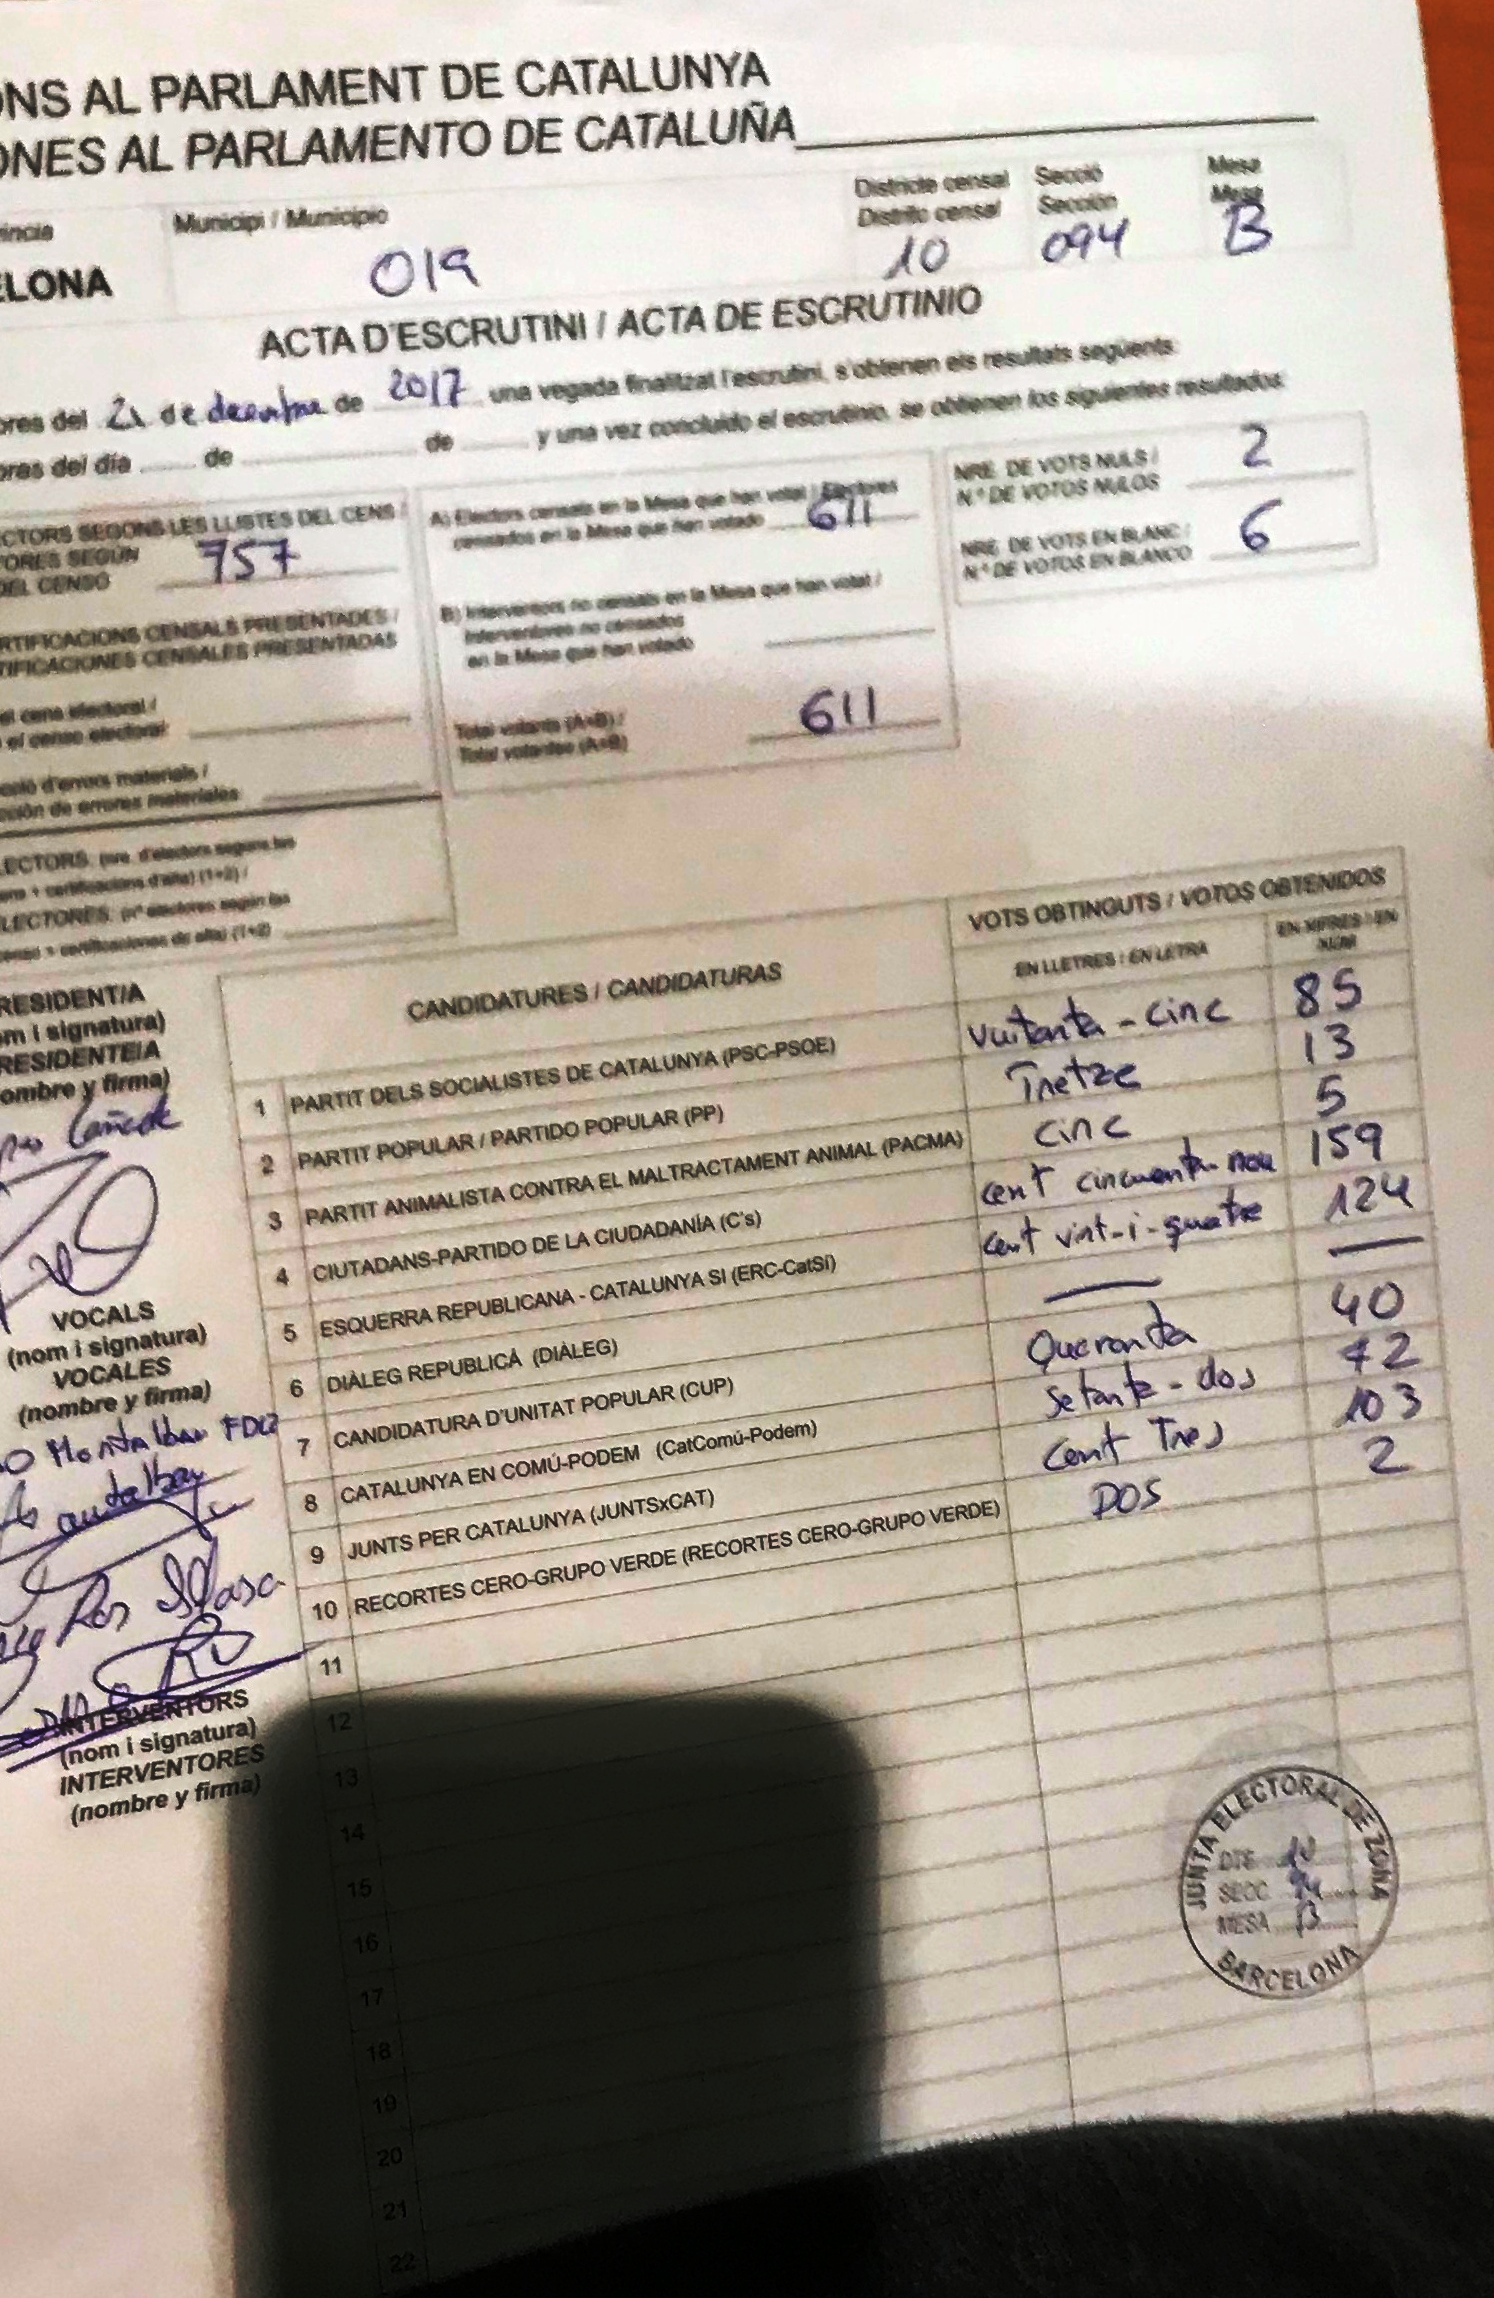 ONS AL PARLAMENT DE CATALUNYA
ONES AL PARLAMENTO DE CATALUÑA
Municipi / Municipio
Districte censal
Distrito censal
Secció
Sección
Mesa
Mesa
ELONA
019
10
094
B
ACTA D'ESCRUTINI / ACTA DE ESCRUTINIO
ores del 21 de decembre de 2017 una vegada finalitzat l'escrutini, s'obtenen els resultats següents:
oras del día de de y una vez concluido el escrutinio, se obtienen los siguientes resultados:
ECTORS SEGONS LES LLISTES DEL CENS /
TORES SEGÚN
DEL CENSO 757
RTIFICACIONS CENSALS PRESENTADES /
TIFICACIONES CENSALES PRESENTADAS
el cens electoral /
el censo electoral
cció d'errors materials /
cción de errores materiales
LECTORS: (nre. d'electors segons les
cens + certificacions d'alta) (1+2) /
LECTORES: (nº electores según las
censo + certificaciones de alta) (1+2)
A) Electors censats en la Mesa que han votat / Electores
censados en la Mesa que han votado 611
B) Interventors no censats en la Mesa que han votat /
Interventores no censados
en la Mesa que han votado
Total votants (A+B) /
Total votantes (A+B) 611
NRE. DE VOTS NULS /
N.º DE VOTOS NULOS 2
NRE. DE VOTS EN BLANC /
N.º DE VOTOS EN BLANCO 6
RESIDENT/A
om i signatura)
RESIDENTE/A
ombre y firma)
VOCALS
(nom i signatura)
VOCALES
(nombre y firma)
Montalban
Ros
INTERVENTORS
(nom i signatura)
INTERVENTORES
(nombre y firma)
CANDIDATURES / CANDIDATURAS
VOTS OBTINGUTS / VOTOS OBTENIDOS
EN LLETRES / EN LETRA
EN XIFRES / EN NÚM
1 PARTIT DELS SOCIALISTES DE CATALUNYA (PSC-PSOE) Vuitanta-cinc 85
2 PARTIT POPULAR / PARTIDO POPULAR (PP) Tretze 13
3 PARTIT ANIMALISTA CONTRA EL MALTRACTAMENT ANIMAL (PACMA) cinc 5
4 CIUTADANS-PARTIDO DE LA CIUDADANÍA (C's) cent cincuanta-nou 159
5 ESQUERRA REPUBLICANA - CATALUNYA SI (ERC-CatSí) cent vint-i-quatre 124
6 DIÀLEG REPUBLICÀ (DIÀLEG) — —
7 CANDIDATURA D'UNITAT POPULAR (CUP) Quaranta 40
8 CATALUNYA EN COMÚ-PODEM (CatComú-Podem) Setanta-dos 72
9 JUNTS PER CATALUNYA (JUNTSxCAT) Cent Tres 103
10 RECORTES CERO-GRUPO VERDE (RECORTES CERO-GRUPO VERDE) DOS 2
11
12
13
14
15
16
17
18
19
20
21
22
JUNTA ELECTORAL DE ZONA
DTE 10
SECC 94
MESA B
BARCELONA